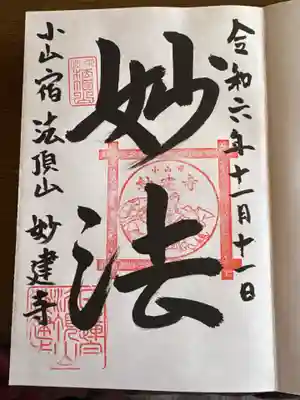 令和六年十一月十一日
妙法
小山宿 法頂山 妙建寺
小山宿
妙建寺